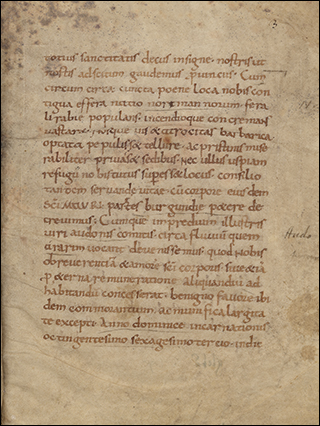 3
totius sanctitatis decus insigne. nostris ut
nostis adscitum gaudemus p̱uincus. Cum
circum circa cuncta poene loca nobis con
tigua effera natio normannorum. fera
li rabie populans. incendioque concremans
uastare. nosque uis & atrocitas barbarica
optata pepulisset tellure. ac pristinis mise
rabiliter priuasset sedibus. nec ullus uspiam
refugii nobis tutus superesset locus. consilio
tandem seruandae uitae. cū corpore eiusdem
sc̄i MAURI. partes burgundiae petere de
creuimus. Cumque impredium illustris
uiri audonis comitis. circa fluuiū quem
ararim uocant deuenissemus. quod nobis
ob reuerentiā & amore sc̄i corporis. sine
& aeterna remuneratione aliquandiu ad
habitandū concesserat. benigno fauore ibi
dem commorantium. ac munifica largita
te excepti. Anno dominicae incarnationis.
octingentesimo sexagesimo tertio. indit